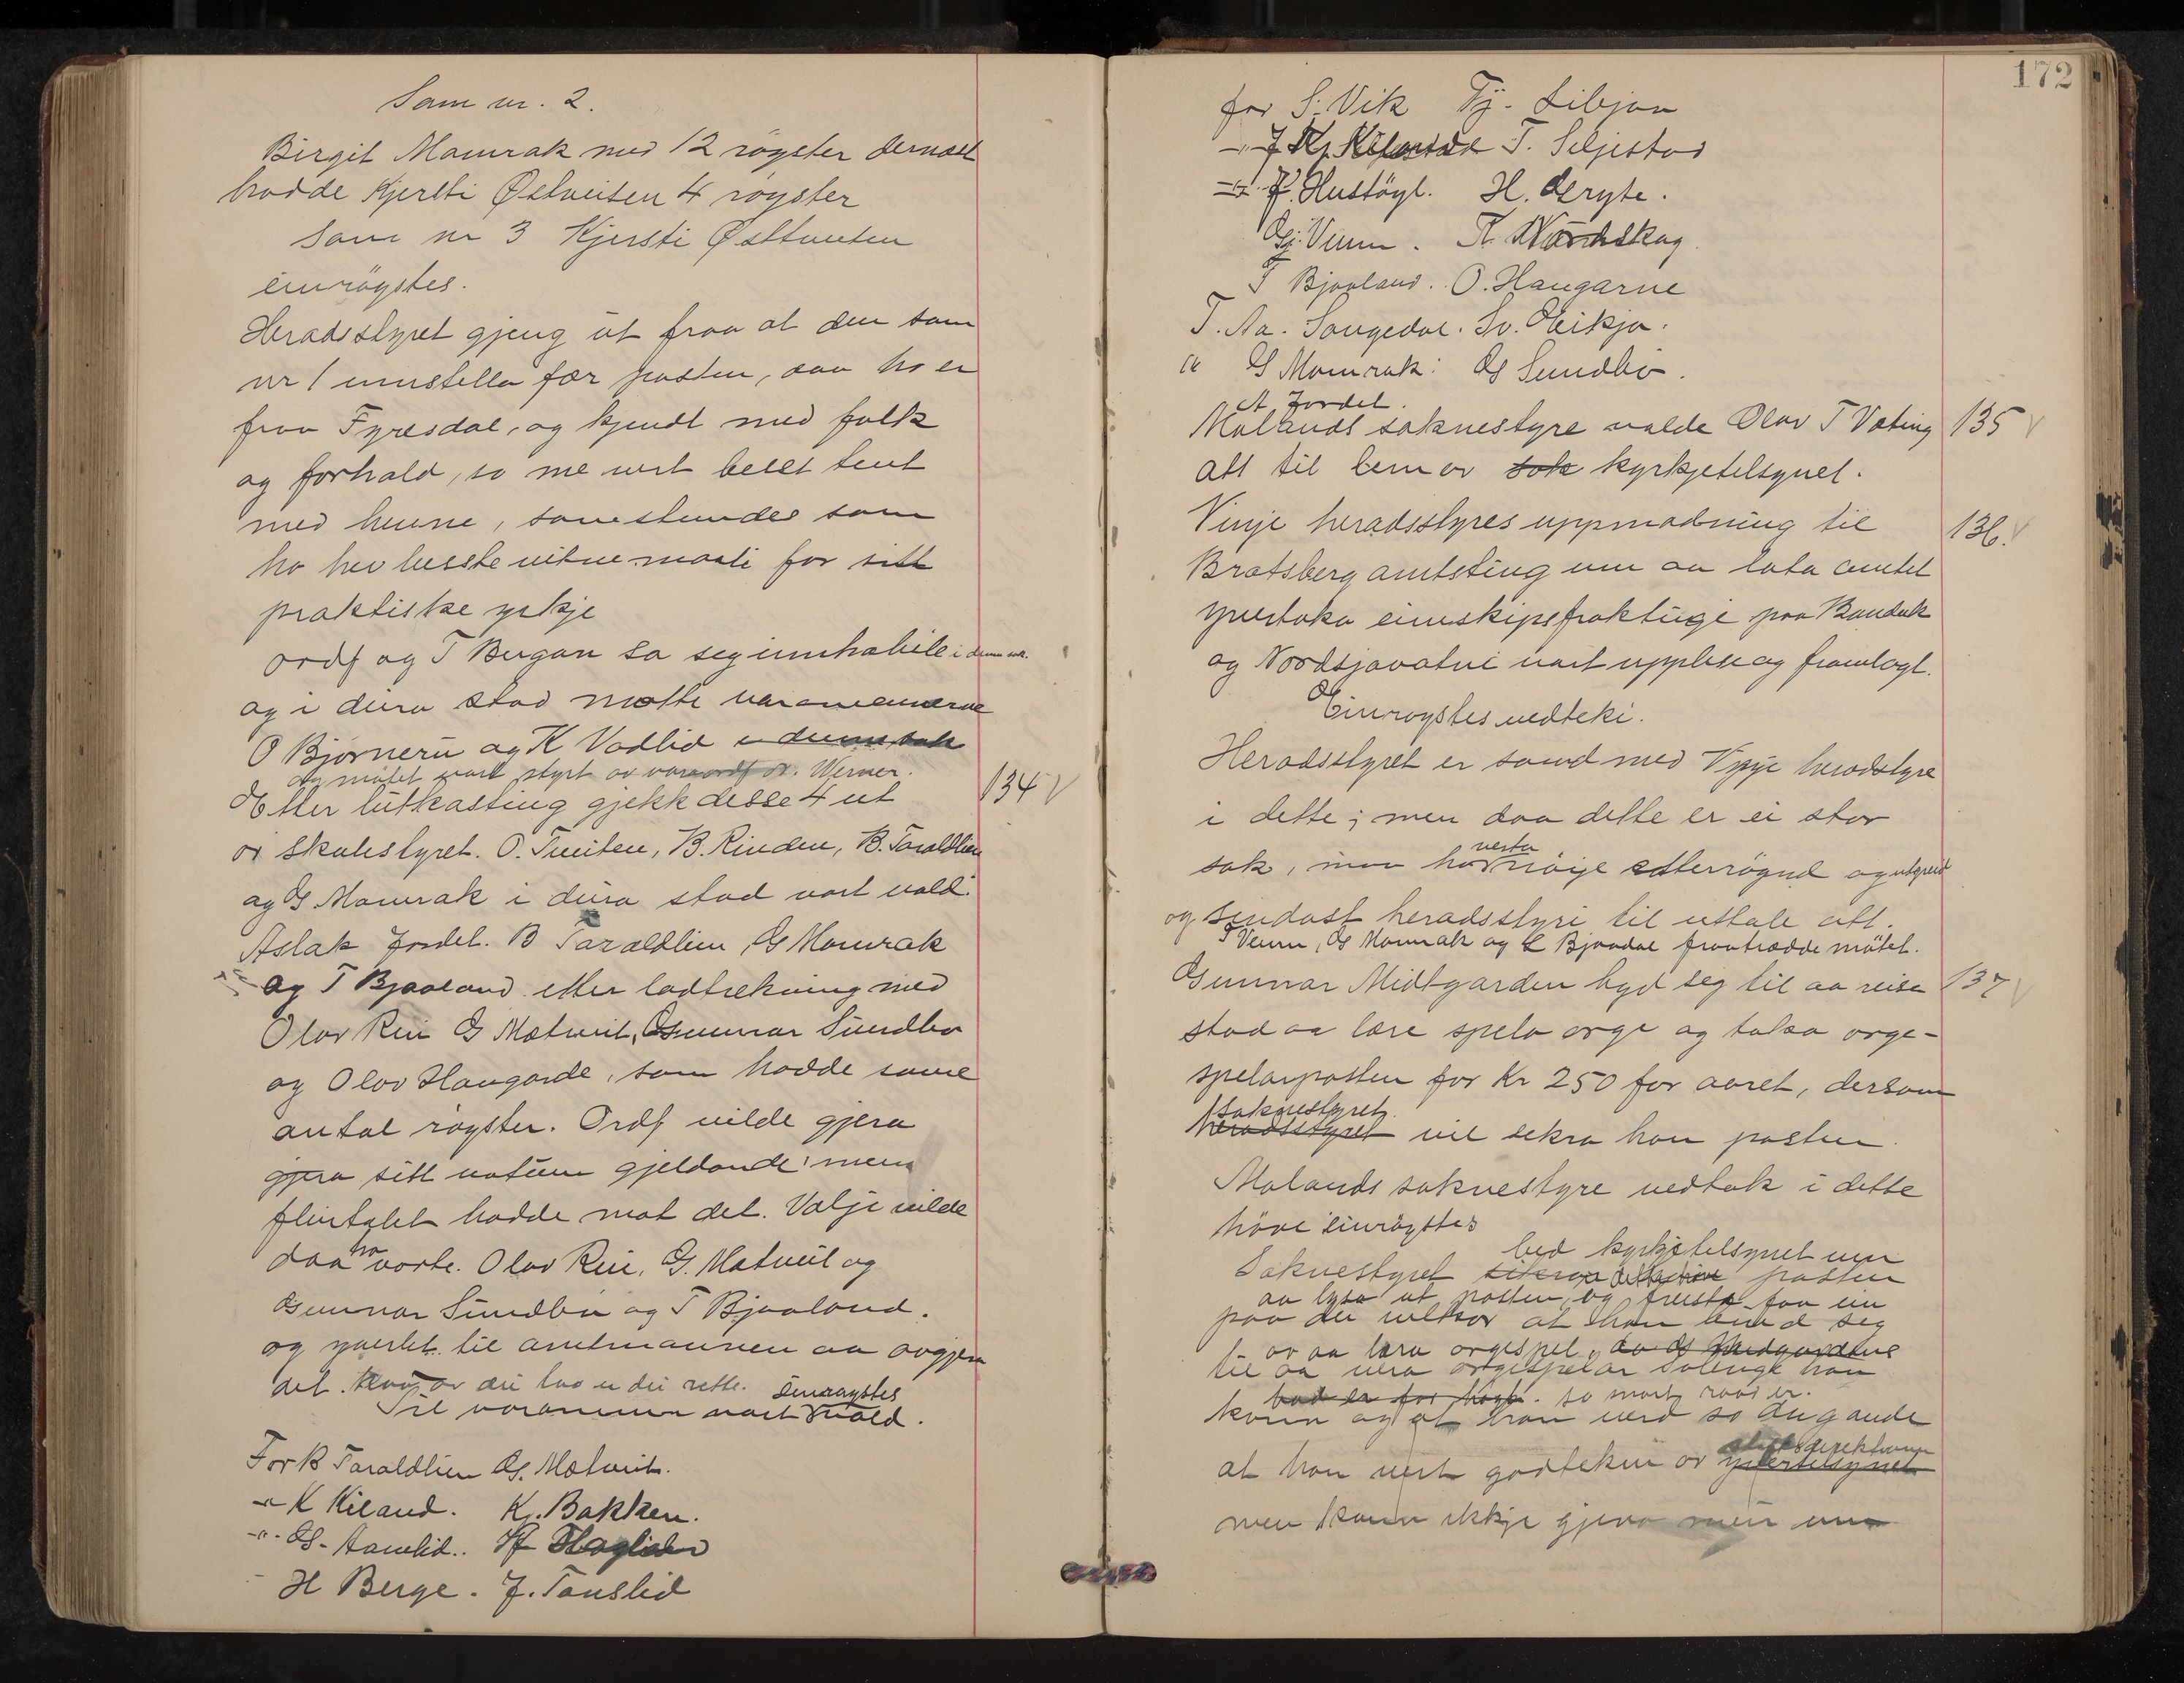 Som nr. 2.
Birgit Momrak med 12 røyster dernæst
hadde Kjersti Østveiten 4 røyster
Som nr 3 Kjersti Østtveiten
einrøystes.
Heradsstyret gjeng ut fraa at den som
nr 1 innstella fær posten, daa ho er
fraa Fyresdal, og kjendt med folk
og forhald, so me vert best tent
med henne, somstundes som
ho hev beste vitnemaali for sitt
praktiske yrkje
ordf og T Bergan sa seg innhabile i denne sak.
og i deira stad møtte varamennerne
O Bjørnerü og K Vadlid i denne sak
og møtet vart styrt av varaordf dr. Werner.
Etter lutkasting gjekk desse 4 ut 134 V
or skulestyret. O. Tveiten, B. Rinden, B. Taraldlien
og G Momrak i deira stad vart vald.
Aslak Jordel. B Taraldlien, G Momrak
og T Bjaaland etter lodtrekning med
Olav Rui G Matveit, Gunnar Sundbø
og Olav Haugarde, som hadde same
antal røyster. Ordf vilde gjera
gjera sitt votum gjeldande men
fleirtalet hadde mot det. Valji vilde
daa ha vorte. Olav Rui, G. Matveit og
Gunnar Sundbø og T Bjaaland.
og yverlet til amtmannen aa avgjera
det. Kva av dei tvo er dei rette. einrøystes
Til varamenn vart vald.
For B Taraldlien G. Matveit.
-"- K Kiland. Kj. Bakken.
-"- G. Aamlid.. H Haglider
- H Berge. J. Tonslid
172
for S. Vik Tj. Libjon
-"- J Kj. T. Seljestad
-"- J. Hustøyl. H. Gryte.
Gj. Veum. K. Nordskog.
T Bjaaland. O. Haugarne
T. Aa. Songedal. Sv. Eikja.
" G Momrak: G Sundbø.
A Jordel.
Molands soknestyre valde Olav T Vøting 135 V
att til lem av sok kyrkjetilsynet.
Vinje heradsstyres uppmodning til 136. V
Bratsberg amtsting um aa lata amtet
yvertaka einskipsfraktuge paa Bandak
og Nordsjøvatni vart upplese og framlagt.
Einrøystes vedteki.
Heradsstyret er samd med Vinje heradstyre
i dette; men daa dette er ei stor
sak, maa ho verta nøye etterrøynd og utgreid
og sendast heradsstyri til uttale att.
T Veum, G Momrak og C Bjaadal fraatrædde møtet.
Gunnar Midtgarden byd seg til aa reisa 137 V
stad aa lære spela orge og taka orge-
spelarposten for Kr 250 for aaret, dersom
soknestyret
heradsstyret vil sekra han posten.
Molands soknestyre vedtok i dette
høve einrøystes
bed kyrkjetilsynet um
Soknestyret posten
aa lysa ut posten, og freista faa ein
paa dei vilkor at han bind seg
av aa læra orgespel, av G Midgardens
til aa vera orgespelar solenge han
bod er for høgt. so snart raad er.
kann og at han verd so dugande
stiftsdirektionen
at han vert godteken av yvertilsynet
men kann ikkje gjera meir um